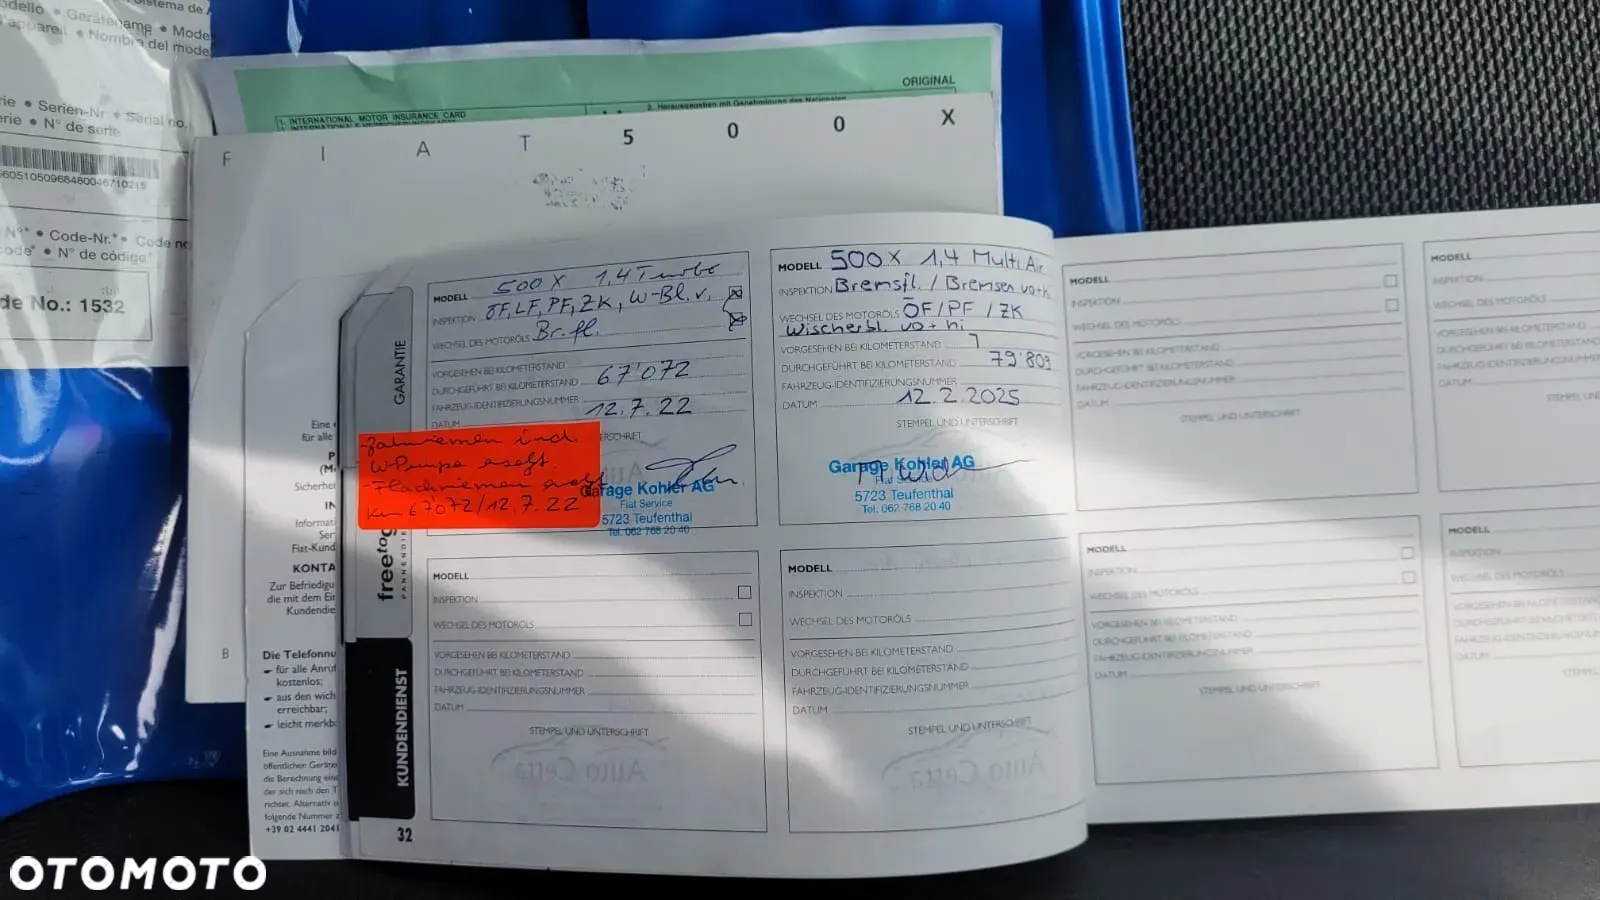 dello • Gerätename • Mode
l'appareil • Nombre del mode
rie • Serien-Nr • Serial no.
érie • N° de serie
N°* • Code-Nr.* • Code no
code* • N° de código*
de No.: 1532
ORIGINAL
1. INTERNATIONAL MOTOR INSURANCE CARD
F I A T 5 0 0 X
GARANTIE
MODELL 500X 1,4 Turbo
INSPEKTION ÖF, LF, PF, ZK, W-Bl. v.
WECHSEL DES MOTORÖLS Br. fl.
VORGESEHEN BEI KILOMETERSTAND
DURCHGEFÜHRT BEI KILOMETERSTAND 67'072
FAHRZEUG-IDENTIFIZIERUNGSNUMMER
DATUM 12.7.22
-Zahnriemen incl.
W-Pumpe ersetzt
-Flachriemen ersetzt
km 67'072/12.7.22
Garage Kohler AG
Fiat Service
5723 Teufenthal
Tel. 062 768 20 40
MODELL 500X 1,4 MultiAir
INSPEKTION Bremsfl. / Bremsen vo+hi
WECHSEL DES MOTORÖLS ÖF/PF /ZK
Wischerbl. vo+hi
VORGESEHEN BEI KILOMETERSTAND
DURCHGEFÜHRT BEI KILOMETERSTAND 79'809
FAHRZEUG-IDENTIFIZIERUNGSNUMMER
DATUM 12.2.2025
STEMPEL UND UNTERSCHRIFT
Garage Kohler AG
Fiat Service
5723 Teufenthal
Tel. 062 768 20 40
MODELL
INSPEKTION
WECHSEL DES MOTORÖLS
VORGESEHEN BEI KILOMETERSTAND
DURCHGEFÜHRT BEI KILOMETERSTAND
FAHRZEUG-IDENTIFIZIERUNGSNUMMER
DATUM
STEMPEL UND UNTERSCHRIFT
MODELL
INSPEKTION
WECHSEL DES MOTORÖLS
VORGESEHEN BEI KILOMETERSTAND
DURCHGEFÜHRT BEI KILOMETERSTAND
FAHRZEUG-IDENTIFIZIERUNGSNUMMER
DATUM
STEMPEL UND UNTERSCHRIFT
MODELL
INSPEKTION
WECHSEL DES MOTORÖLS
VORGESEHEN BEI KILOMETERSTAND
DURCHGEFÜHRT BEI KILOMETERSTAND
FAHRZEUG-IDENTIFIZIERUNGSNUMMER
DATUM
STEMPEL UND UNTERSCHRIFT
MODELL
INSPEKTION
WECHSEL DES MOTORÖLS
VORGESEHEN BEI KILOMETERSTAND
DURCHGEFÜHRT BEI KILOMETERSTAND
FAHRZEUG-IDENTIFIZIERUNGSNUMMER
DATUM
STEMPEL UND UNTERSCHRIFT
freetog
PANNENDIE
KUNDENDIENST
32
Eine
für alle
Sicherhei
Informat
Ser
Fiat-Kund
KONTA
Zur Befriedigu
die mit dem Ein
Kundendie
B
Die Telefonnu
für alle Anruf
kostenlos;
aus den wich
erreichbar;
leicht merkb
Eine Ausnahme bild
öffentlichen Geräte
die Berechnung eine
der sich nach den T
richtet. Alternativ
folgende Nummer
+39 02 4441 2041
OTOMOTO